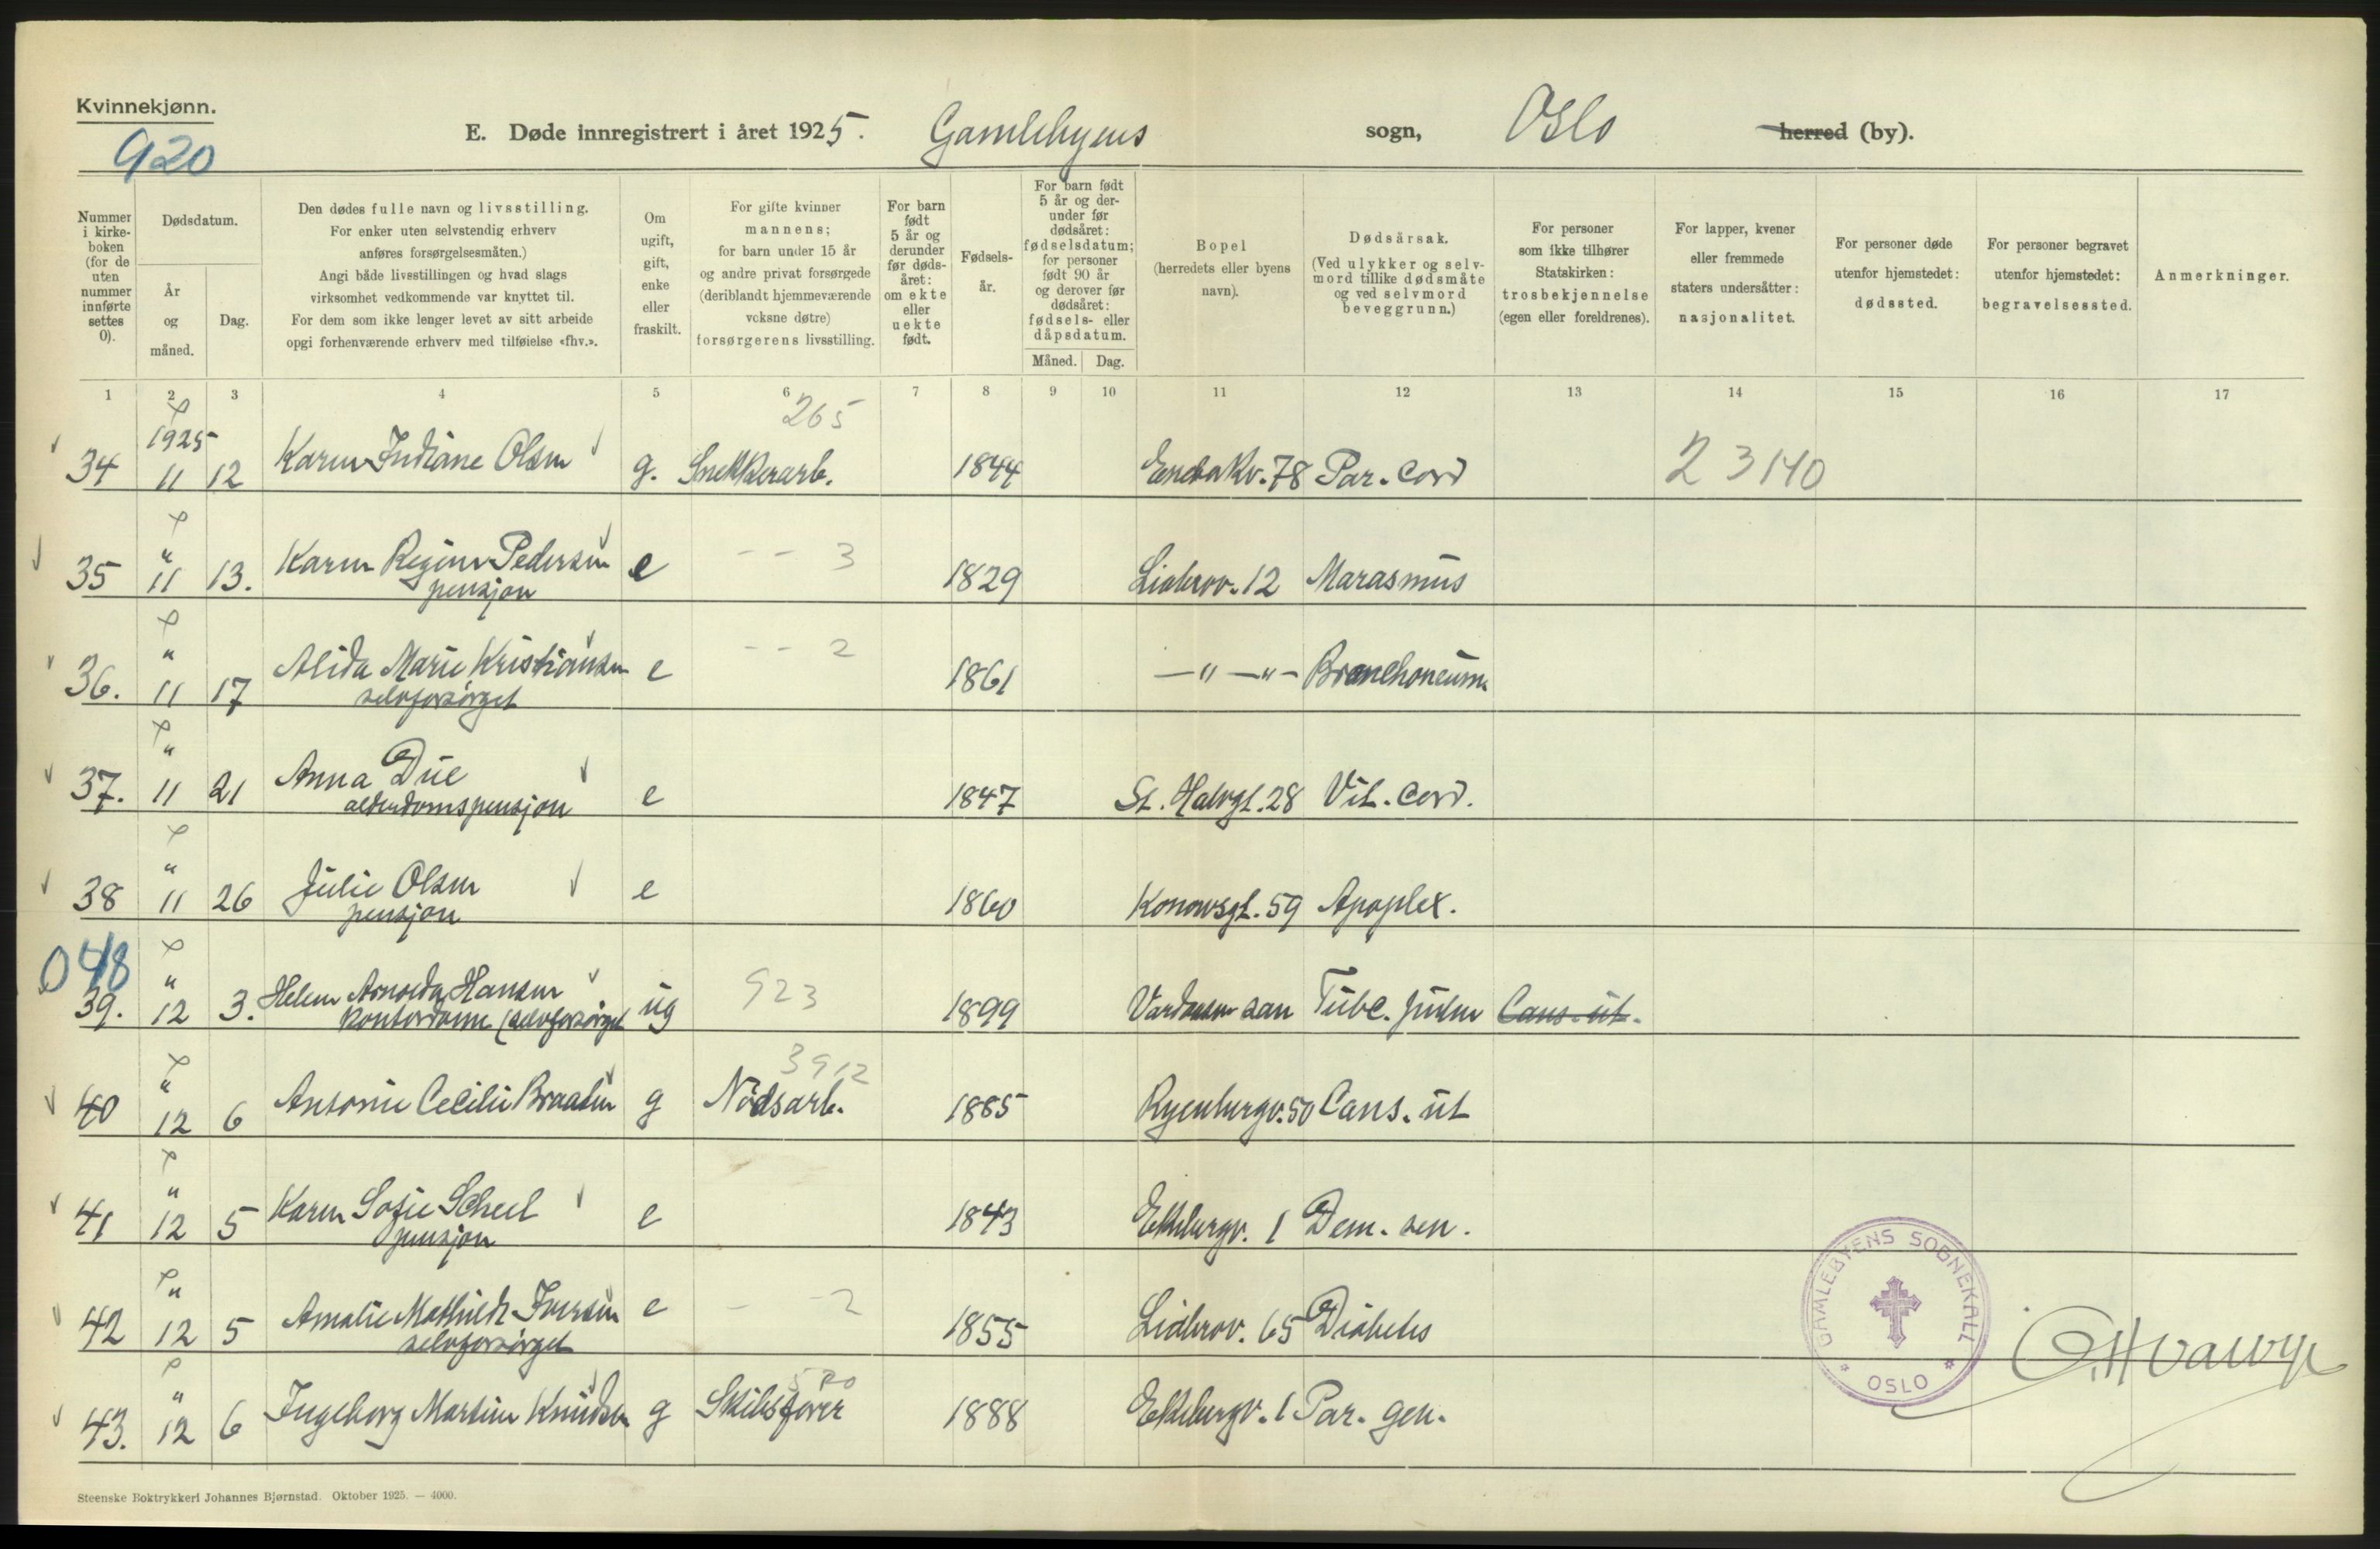 Kvinnekjønn.
920
E. Døde innregistrert i året 1925. Gamlebyens sogn, Oslo herred (by).
Nummer i kirke-boken (for de uten nummer innførte settes 0).
Dødsdatum.
År og måned.
Dag.
Den dødes fulle navn og livsstilling.
For enker uten selvstendig erhverv
anføres forsørgelsesmåten.)
Angi både livsstillingen og hvad slags
virksomhet vedkommende var knyttet til.
For dem som ikke lenger levet av sitt arbeide
opgi forhenværende erhverv med tilføielse «fhv.».
Om ugift, gift, enke eller fraskilt.
For gifte kvinner
mannens;
for barn under 15 år
og andre privat forsørgede
(deriblandt hjemmeværende
voksne døtre)
forsørgerens livsstilling.
For barn født 5 år og derunder før døds-året: om ekte eller uekte født.
Fødsels-år.
For barn født 5 år og der-under før dødsåret: fødselsdatum; for personer født 90 år og derover før dødsåret: fødsels- eller dåpsdatum.
Måned. Dag.
Bopel
(herredets eller byens
navn).
Dødsårsak.
(Ved ulykker og selv-
mord tillike dødsmåte
og ved selvmord
beveggrunn.)
For personer
som ikke tilhører
Statskirken:
trosbekjennelse
(egen eller foreldrenes).
For lapper, kvener
eller fremmede
staters undersåtter:
nasjonalitet.
For personer døde
utenfor hjemstedet:
dødssted.
For personer begravet
utenfor hjemstedet:
begravelsessted.
Anmerkninger.
1 2 3 4 5 6 7 8 9 10 11 12 13 14 15 16 17
265
1925
34 11 12 Karen Indiane Olsen g. Snekkerarb. 1844 Enebakv. 78 Par. cord 23140
" -- 3
35 11 13. Karen Regine Pedersen e 1829 Liabrov. 12 Marasmus
pensjon
" -- 2
36. 11 17 Alida Marie Kristiansen e 1861 —"—"— Bronchoneum.
selvforsørget
"
37. 11 21 Anna Due e 1847 St. Halvgt. 28 Vit. cord.
alderdomspensjon
"
38 11 26 Julie Olsen e 1860 Konowsgt. 59 Apoplex.
pensjon
048
" 923
39. 12 3. Helene Hansen ug 1899 Vardaasen san Tubc. pulm Canc. ut.
kontordame (selvforsørget
" 3912
40 12 6 Antonie Cecilie Braaten g Nødsarb. 1885 Ryenbergv. 50 Canc. ut
"
41 12 5 Karen Sofie Scheel e 1843 Ekebergv. 1 Dem. sen.
pensjon
" - - 2
42 12 5 Amalie Mathilde Iversen e 1855 Liabrov. 65 Diabetes
selvforsørget
"
43. 12 6 Ingeborg Martine Knudsen g Skibsfører 1888 Ekebergv. 1 Par. gen.
GAMLEBYENS SOGNEKALL
* OSLO *
Steenske Boktrykkeri Johannes Bjørnstad. Oktober 1925. — 4000.